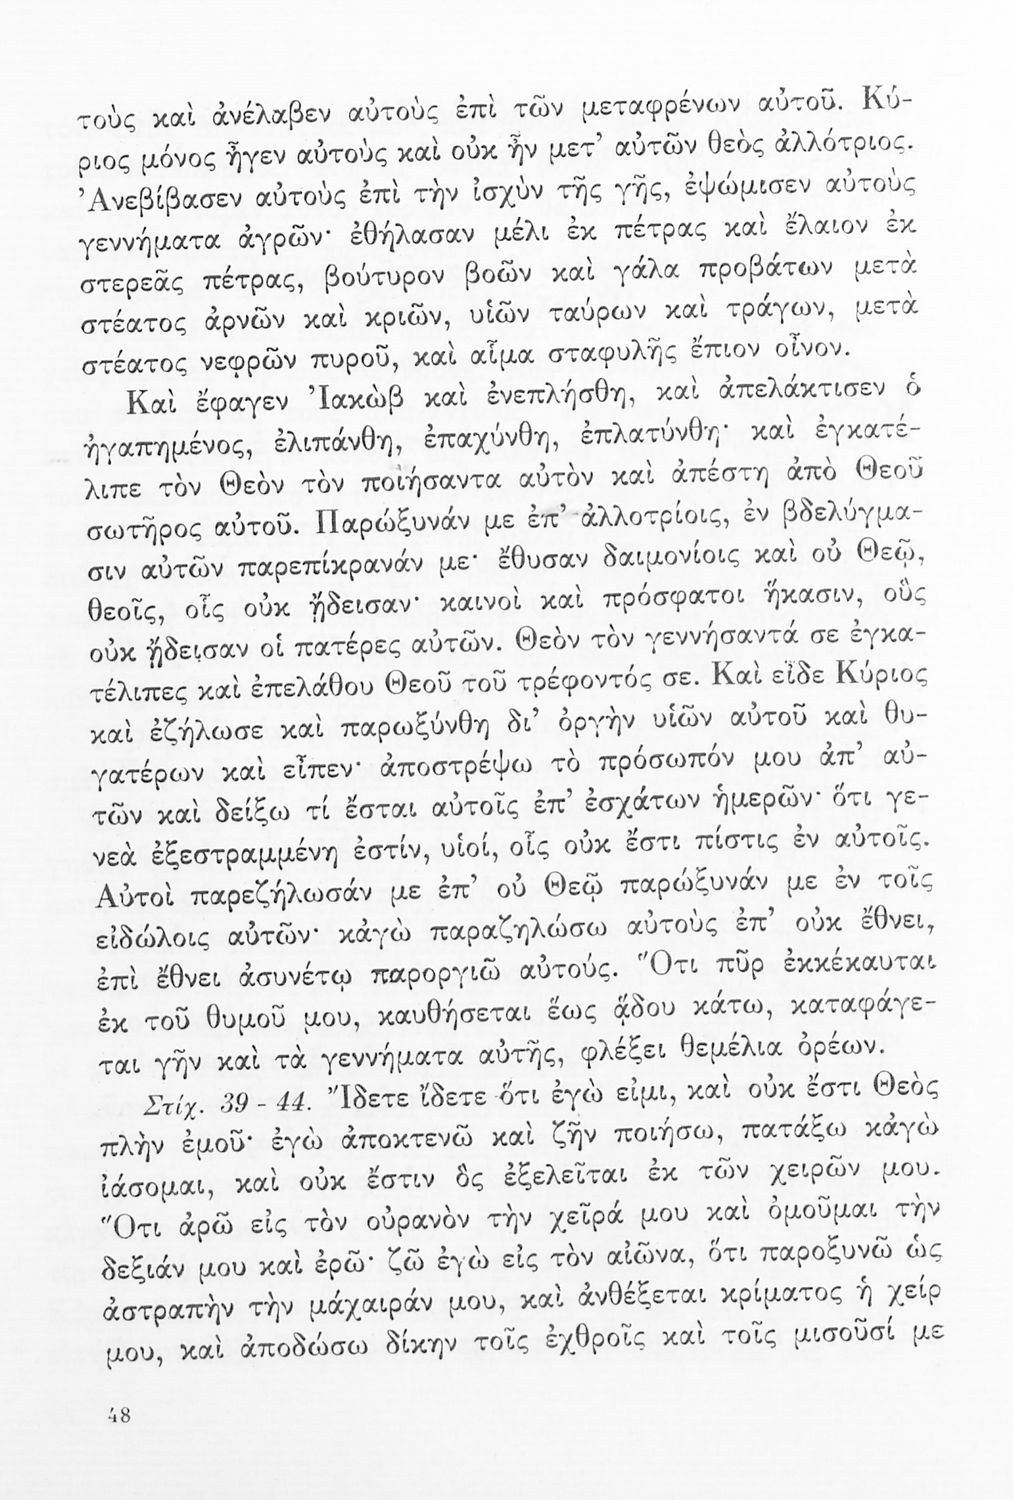 τοὺς καὶ ἀνέλαβεν αὐτοὺς ἐπὶ τῶν μεταφρένων αὐτοῦ. Κύ-
ριος μόνος ἦγεν αὐτοὺς καὶ οὐκ ἦν μετ’ αὐτῶν θεὸς ἀλλότριος.
Ἀνεβίβασεν αὐτοὺς ἐπὶ τὴν ἰσχὺν τῆς γῆς, ἐψώμισεν αὐτοὺς
γεννήματα ἀγρῶν· ἐθήλασαν μέλι ἐκ πέτρας καὶ ἔλαιον ἐκ
στερεᾶς πέτρας, βούτυρον βοῶν καὶ γάλα προβάτων μετὰ
στέατος ἀρνῶν καὶ κριῶν, υἱῶν ταύρων καὶ τράγων, μετὰ
στέατος νεφρῶν πυροῦ, καὶ αἷμα σταφυλῆς ἔπιον οἶνον.
Καὶ ἔφαγεν Ἰακὼβ καὶ ἐνεπλήσθη, καὶ ἀπελάκτισεν ὁ
ἠγαπημένος, ἐλιπάνθη, ἐπαχύνθη, ἐπλατύνθη· καὶ ἐγκατέ-
λιπε τὸν Θεὸν τὸν ποιήσαντα αὐτὸν καὶ ἀπέστη ἀπὸ Θεοῦ
σωτῆρος αὐτοῦ. Παρώξυνάν με ἐπ’ ἀλλοτρίοις, ἐν βδελύγμα-
σιν αὐτῶν παρεπίκρανάν με· ἔθυσαν δαιμονίοις καὶ οὐ Θεῷ,
θεοῖς, οἷς οὐκ ᾔδεισαν· καινοὶ καὶ πρόσφατοι ἥκασιν, οὓς
οὐκ ᾔδεισαν οἱ πατέρες αὐτῶν. Θεὸν τὸν γεννήσαντά σε ἐγκα-
τέλιπες καὶ ἐπελάθου Θεοῦ τοῦ τρέφοντός σε. Καὶ εἶδε Κύριος
καὶ ἐζήλωσε καὶ παρωξύνθη δι’ ὀργὴν υἱῶν αὐτοῦ καὶ θυ-
γατέρων καὶ εἶπεν· ἀποστρέψω τὸ πρόσωπόν μου ἀπ’ αὐ-
τῶν καὶ δείξω τί ἔσται αὐτοῖς ἐπ’ ἐσχάτων ἡμερῶν· ὅτι γε-
νεὰ ἐξεστραμμένη ἐστίν, υἱοί, οἷς οὐκ ἔστι πίστις ἐν αὐτοῖς.
Αὐτοὶ παρεζήλωσάν με ἐπ’ οὐ Θεῷ παρώξυνάν με ἐν τοῖς
εἰδώλοις αὐτῶν· κἀγὼ παραζηλώσω αὐτοὺς ἐπ’ οὐκ ἔθνει,
ἐπὶ ἔθνει ἀσυνέτῳ παροργιῶ αὐτούς. Ὅτι πῦρ ἐκκέκαυται
ἐκ τοῦ θυμοῦ μου, καυθήσεται ἕως ᾅδου κάτω, καταφάγε-
ται γῆν καὶ τὰ γεννήματα αὐτῆς, φλέξει θεμέλια ὀρέων.
Στίχ. 39 - 44. Ἴδετε ἴδετε ὅτι ἐγώ εἰμι, καὶ οὐκ ἔστι Θεὸς
πλὴν ἐμοῦ· ἐγὼ ἀποκτενῶ καὶ ζῆν ποιήσω, πατάξω κἀγὼ
ἰάσομαι, καὶ οὐκ ἔστιν ὃς ἐξελεῖται ἐκ τῶν χειρῶν μου.
Ὅτι ἀρῶ εἰς τὸν οὐρανὸν τὴν χεῖρά μου καὶ ὀμοῦμαι τὴν
δεξιάν μου καὶ ἐρῶ· ζῶ ἐγὼ εἰς τὸν αἰῶνα, ὅτι παροξυνῶ ὡς
ἀστραπὴν τὴν μάχαιράν μου, καὶ ἀνθέξεται κρίματος ἡ χείρ
μου, καὶ ἀποδώσω δίκην τοῖς ἐχθροῖς καὶ τοῖς μισοῦσί με
48